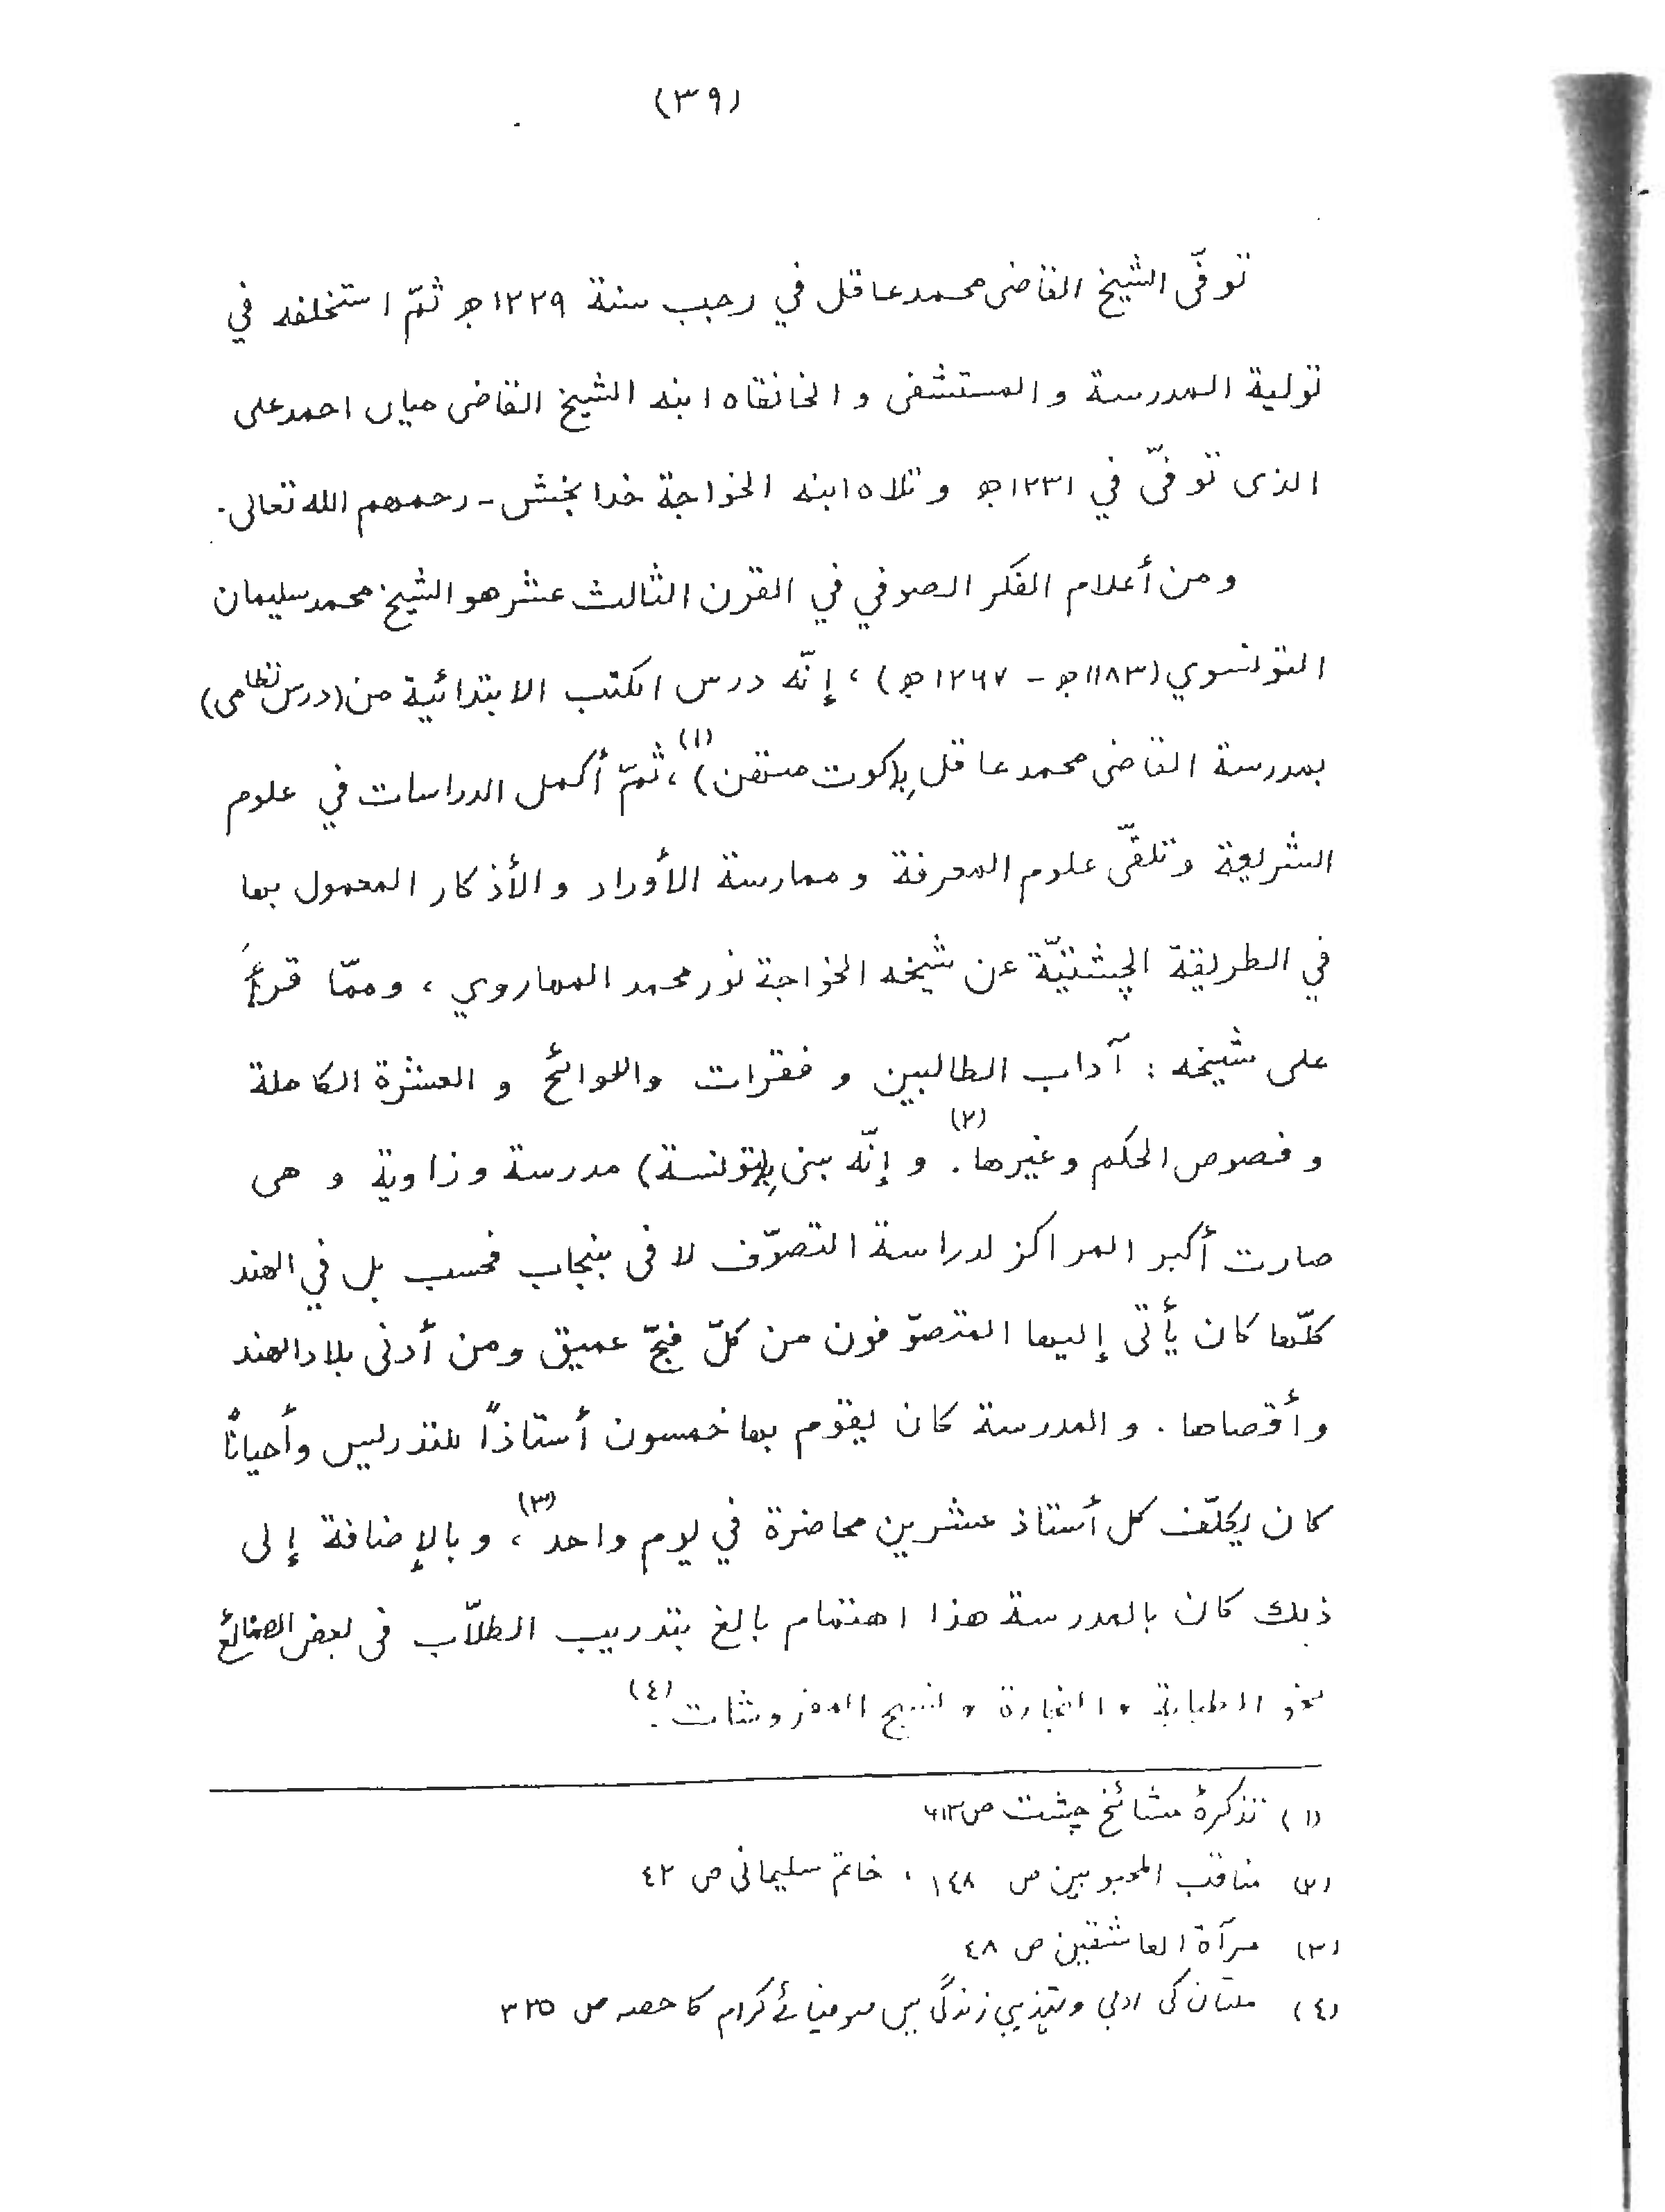 (٣٩)
توفّى الشيخ القاضى محمد عاقل في رجب سنة ١٢٢٩ھ ثمّ استخلفه في
تولية المدرسة و المستشفى و الخانقاه ابنه الشيخ القاضى مياں احمد على
الذى توفّى في ١٢٣١ھ و تلاه ابنه الخواجة خدا بخش - رحمهم الله تعالى.
و من أعلام الفكر الصوفي في القرن الثالث عشر هو الشيخ محمد سليمان
التونسوي (١١٨٣ھ - ١٢٦٧ھ)، إنّه درس الكتب الابتدائية من (درس نظامى)
بمدرسة القاضى محمد عاقل بِ(كوت متهن)(١)، ثمّ أكمل الدراسات في علوم
الشريعة و تلقّى علوم المعرفة و ممارسة الأوراد و الأذكار المعمول بها
في الطريقة الچشتيّة عن شيخه الخواجة نور محمد المهاروي ، و ممّا قرءَ
على شيخه : آداب الطالبين و فقرات واللوائح و العشرة الكاملة
و فصوص الحكم و غيرها(٢). و إنّه بنى بِ(تونسة) مدرسة و زاوية و هى
صارت أكبر المراكز لدراسة التصوّف لا فى بنجاب فحسب بل في الهند
كلّها كان يأتى إليها المتصوّفون من كلّ فجّ عميق و من أدنى بلاد الهند
و أقصاها . و المدرسة كان يقوم بها خمسون أستاذاً للتدريس وأحياناً
كان يكلّف كل أستاذ عشرين محاضرة في يوم واحد(٣)، و بالإضافة إلى
ذلك كان بالمدرسة هذا اهتمام بالغ بتدريب الطلاّب فى بعض الصنائع
نحو الطبابة و النجارة و نسيج المفروشات(٤).
(١) تذكرۂ مشائخ چشت ص ٦١٣
(٢) مناقب المحبوبين ص ١٤٨ ، خاتم سليمانى ص ٤٢
(٣) مرآة العاشقين ص ٤٨
(٤) ملتان کی ادبی و تہذیبی زندگی میں صوفیائے کرام کا حصہ ص ٣٢٥